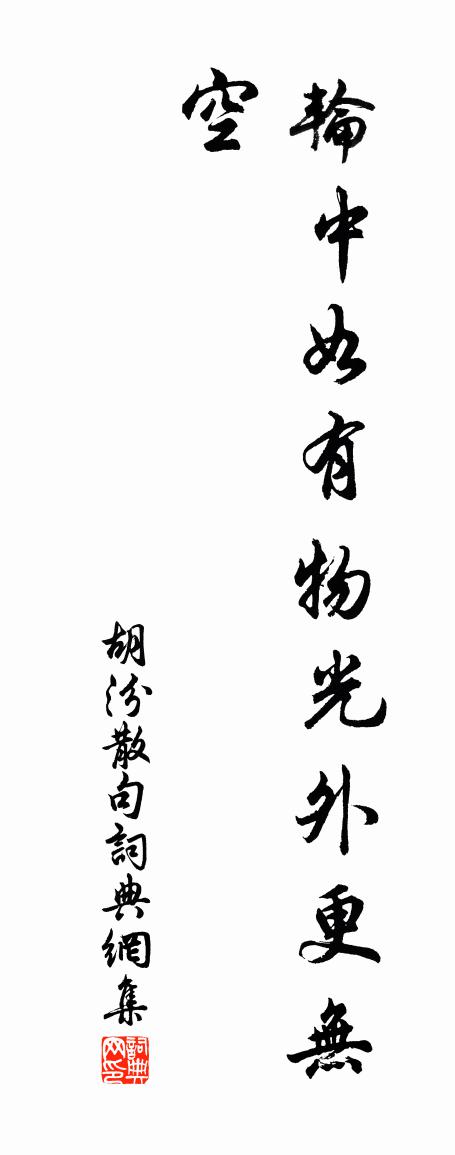 輪中如有物光外更無
空
胡汾散句詞典網集
詞典网印